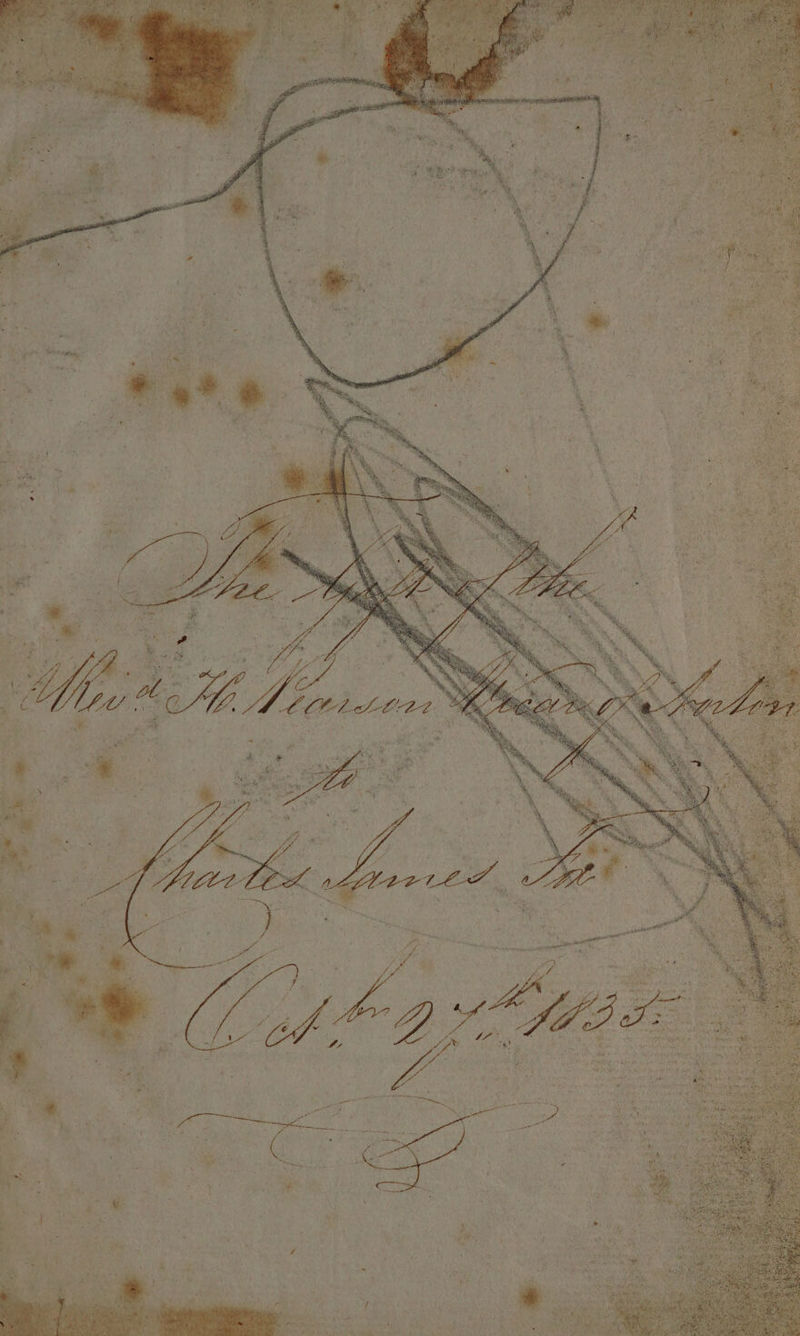 The Gift of the
Revd H. Pearson Vicar of Norton
to
Charles James Fox
Octbr 27th 1835